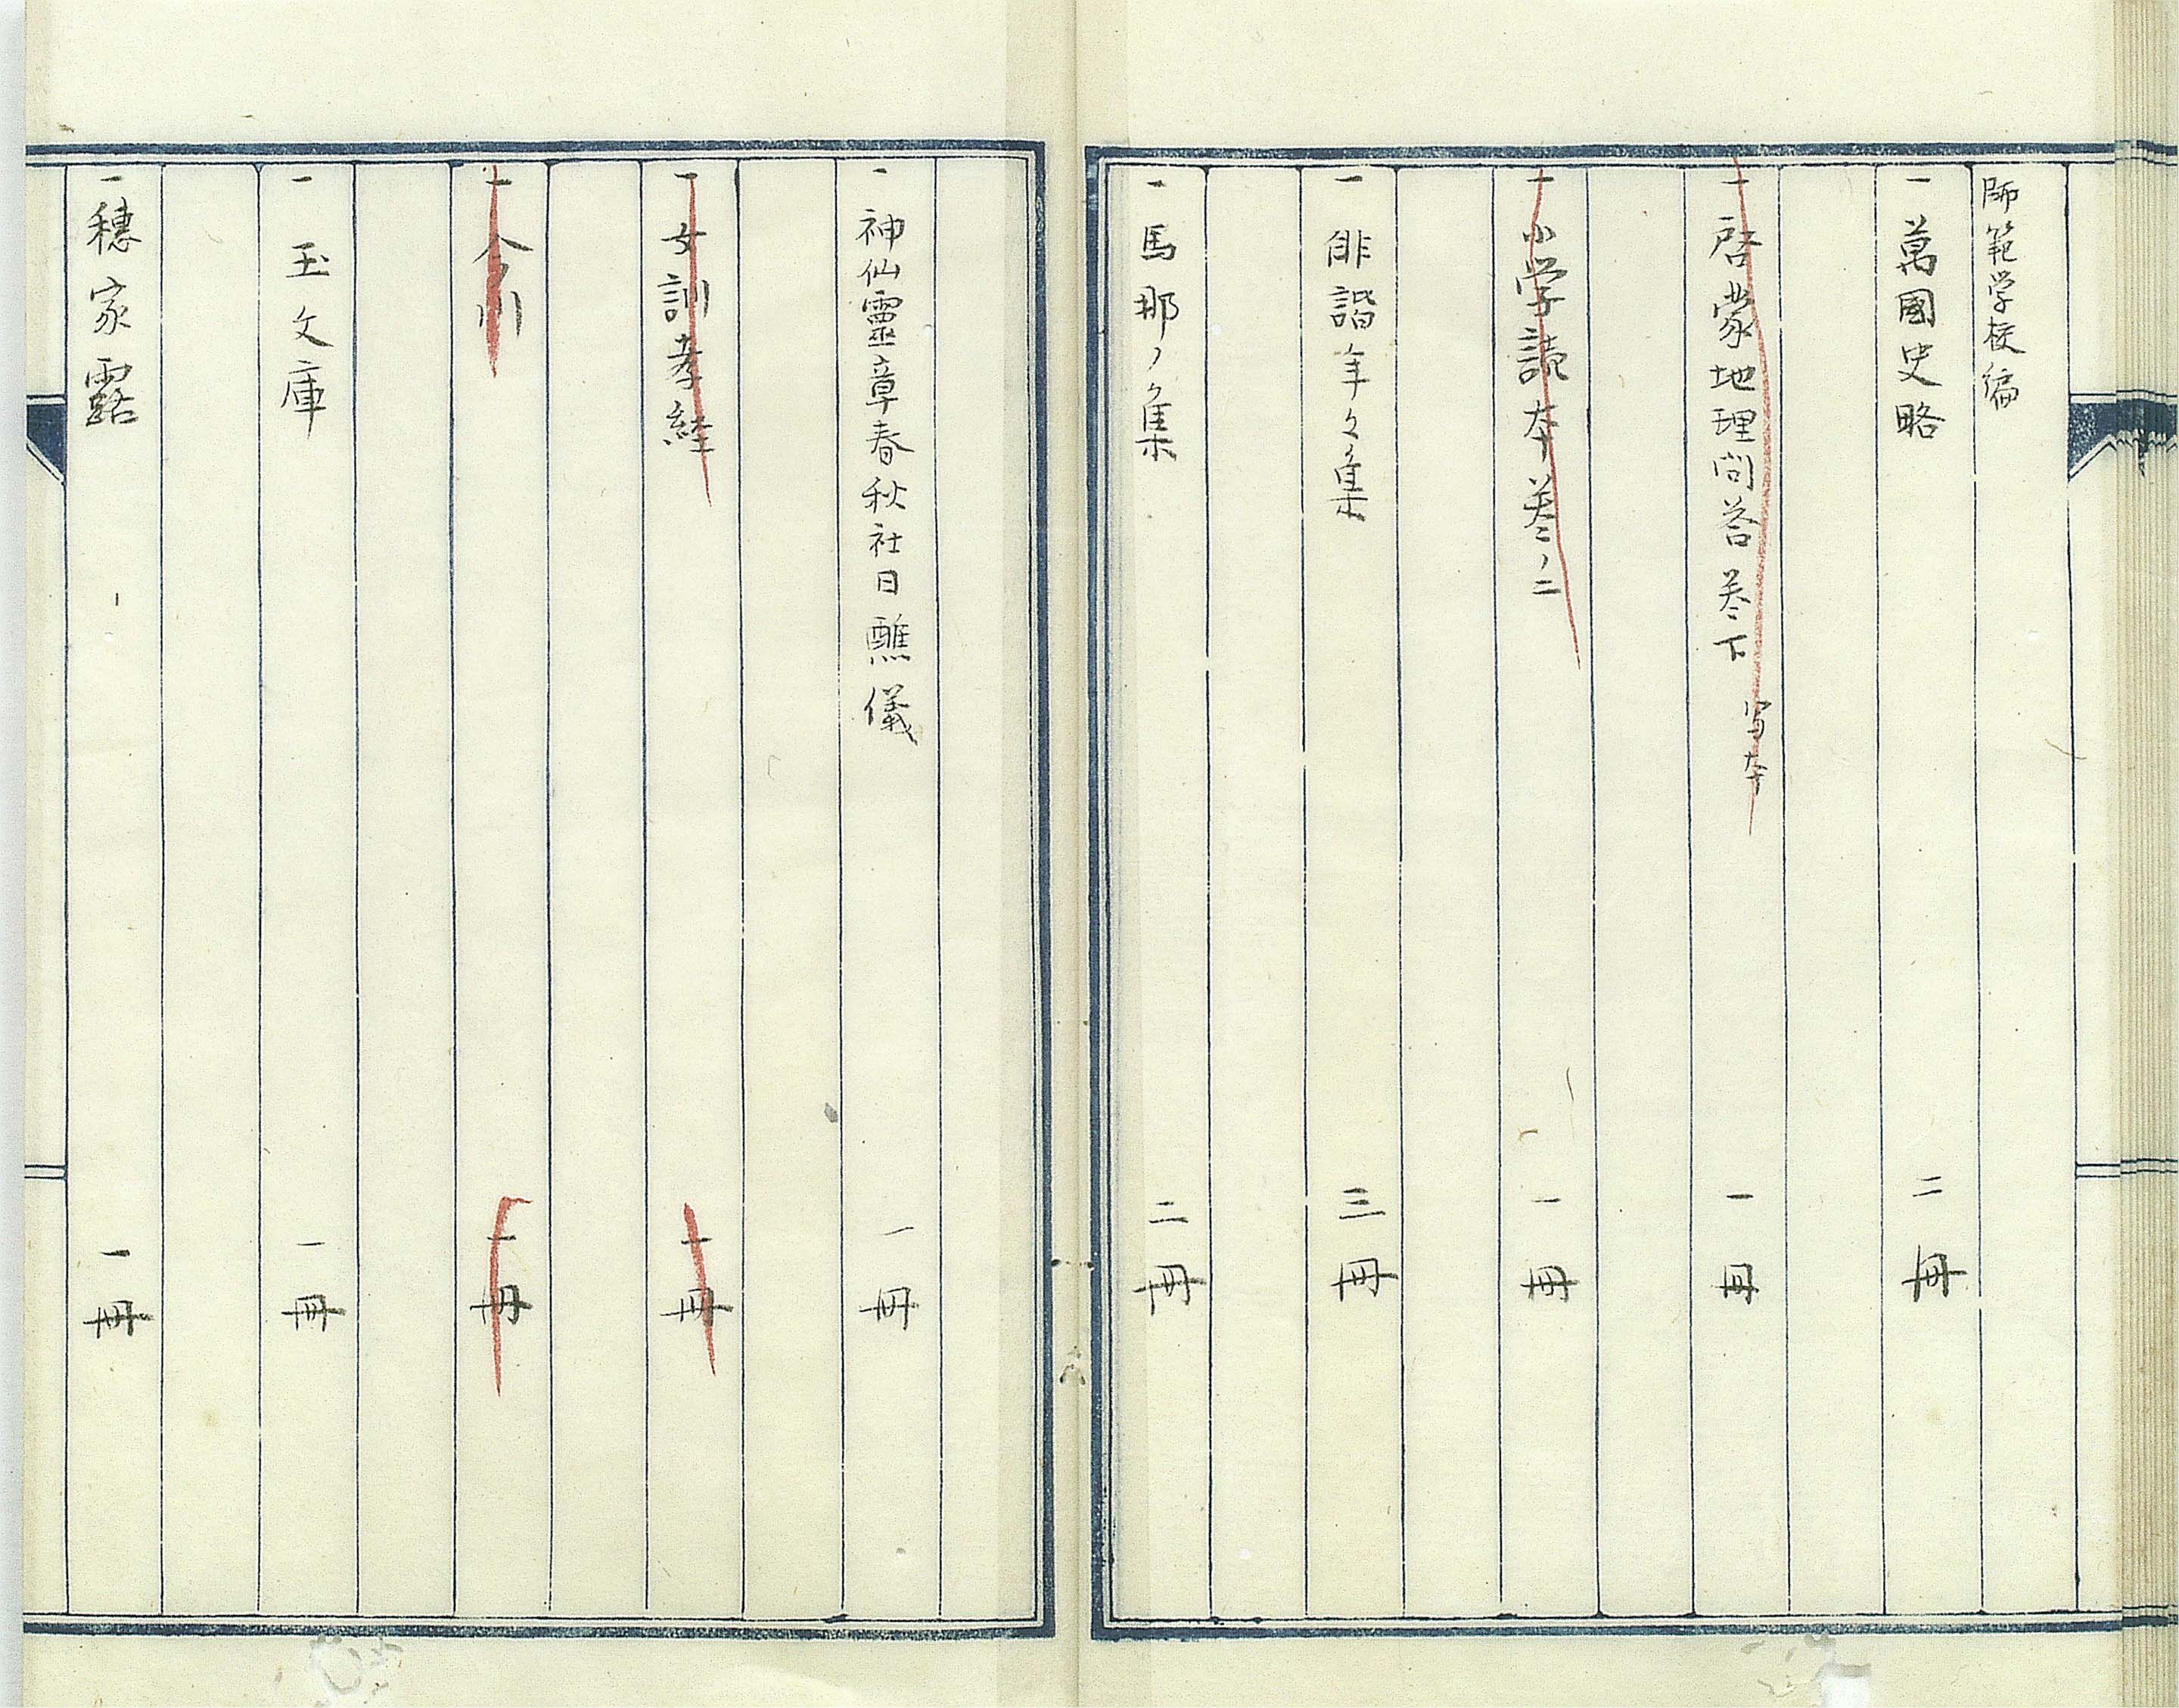 師範学校編
一 萬國史略 二冊
一 啓蒙地理問答 巻下 写本 一冊
一 小学読本 巻ノ二 一冊
一 俳諧年々集 三冊
一 馬耶ノ集 二冊
一 神仙靈章春秋社日醮儀 一冊
一 女訓孝経 一冊
一 今川 一冊
一 玉文庫 一冊
一 穗家露 一冊